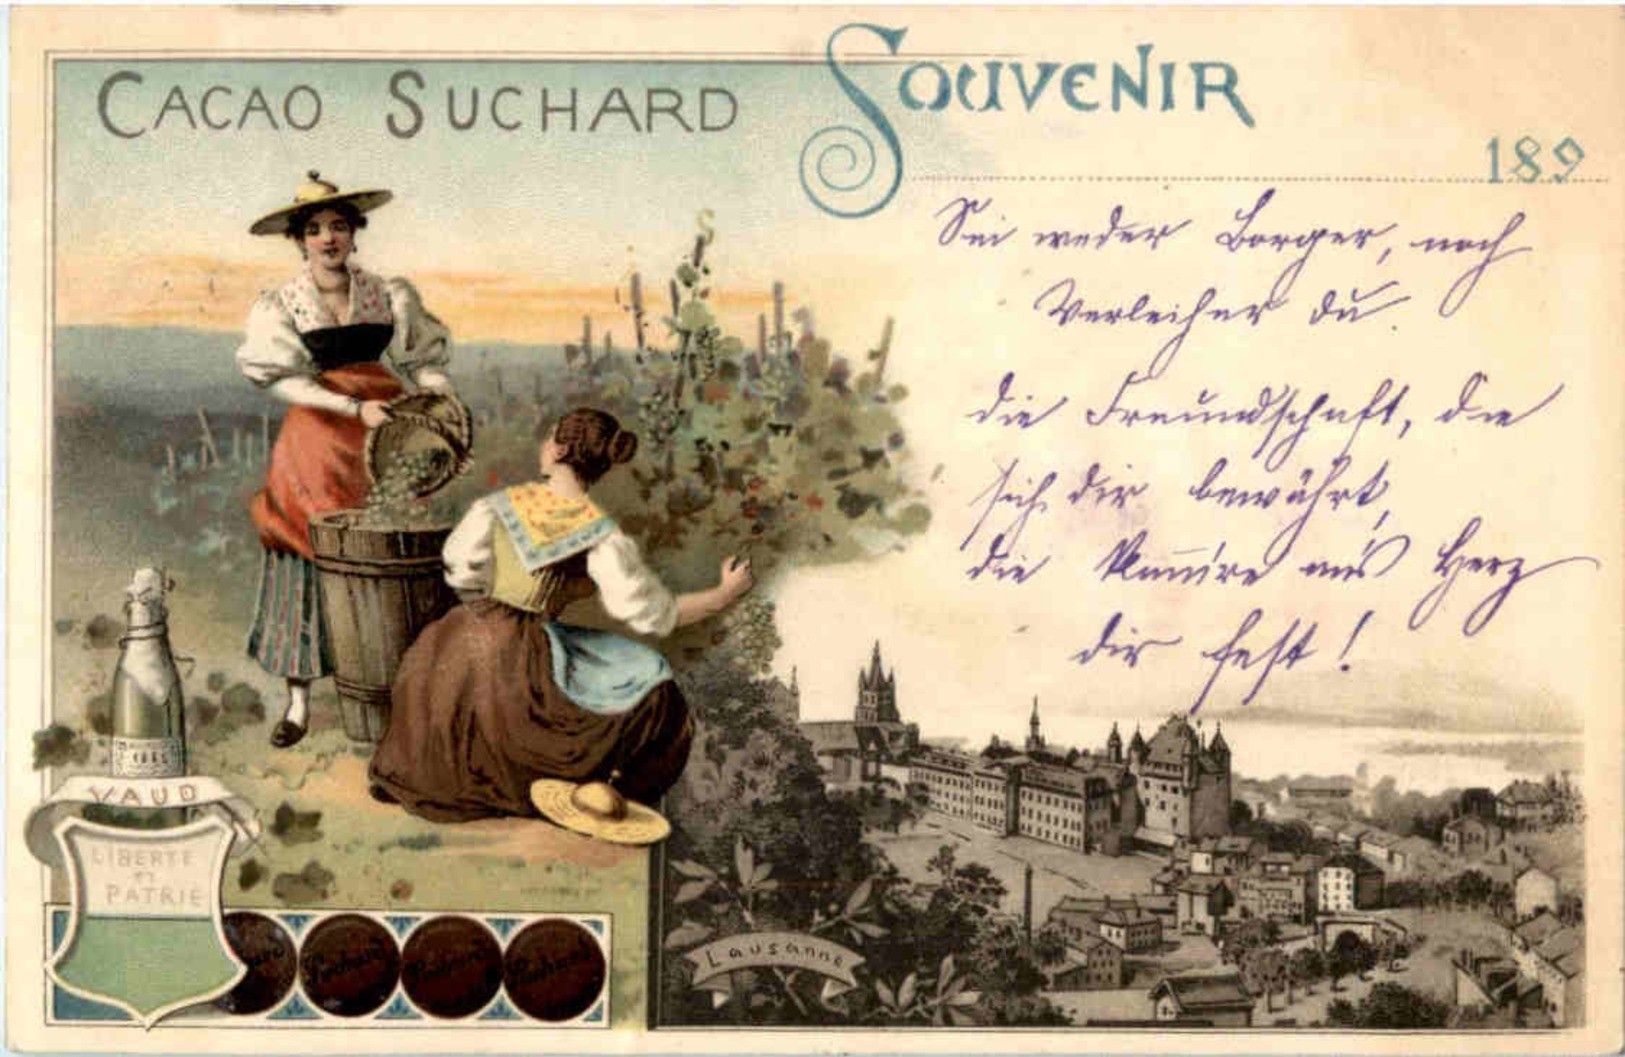 CACAO SUCHARD
SOUVENIR
189
Sei weder Borger, noch
Verleiher du.
die Freundschaft, die
sich dir bewährt,
die ans Herz
dir fest!
VAUD
LIBERTE
ET
PATRIE
Suchard
Suchard
Suchard
Lausanne